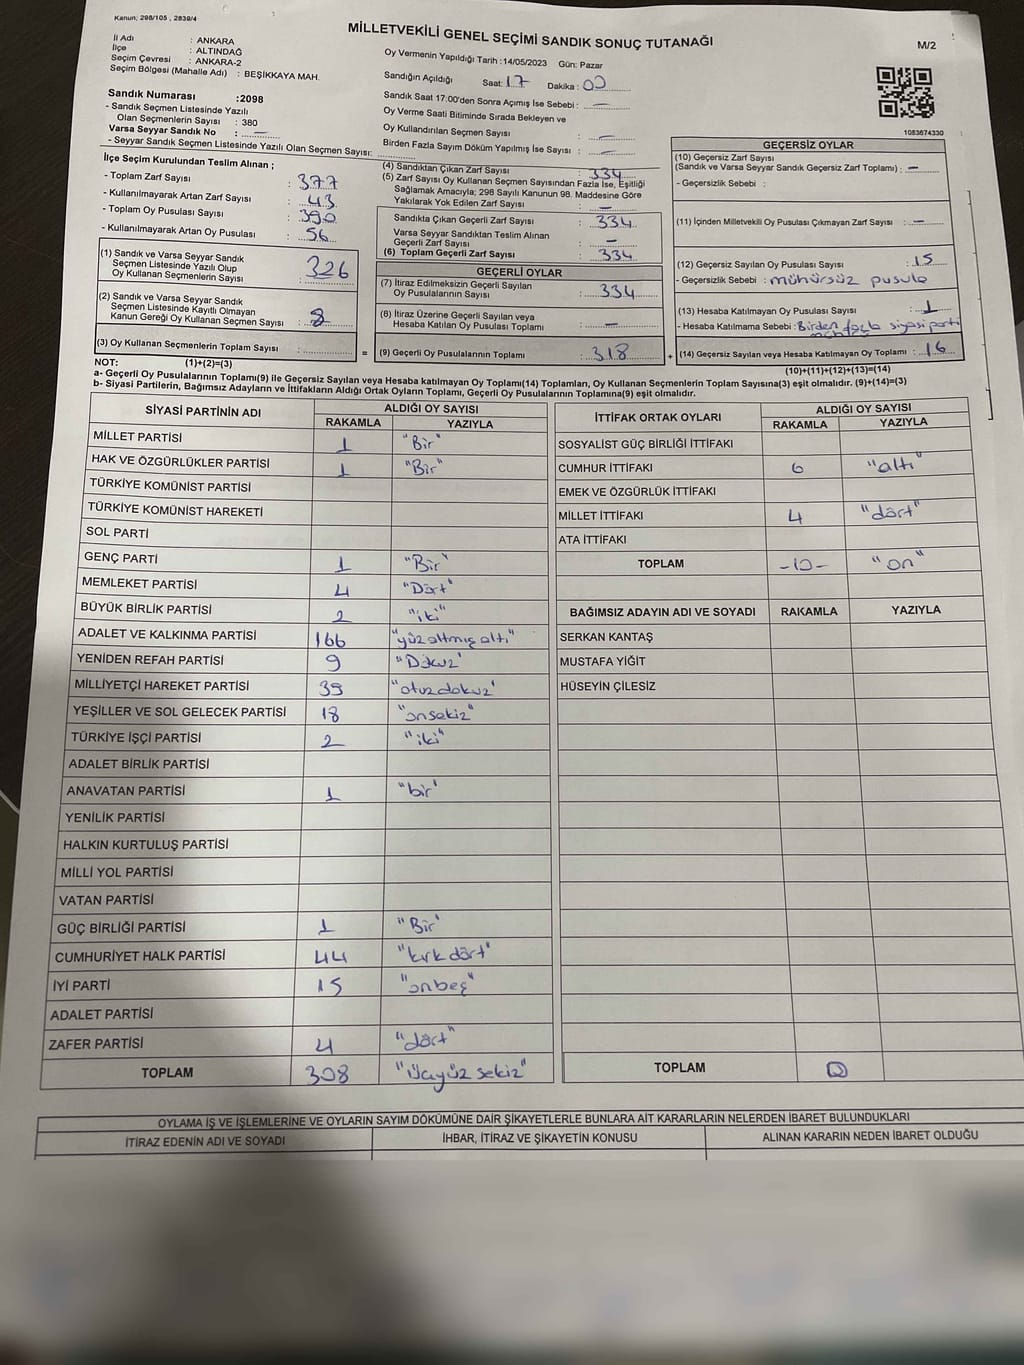 Kanun: 298/105 , 2839/4
MİLLETVEKİLİ GENEL SEÇİMİ SANDIK SONUÇ TUTANAĞI
M/2
İl Adı : ANKARA
İlçe : ALTINDAĞ
Seçim Çevresi : ANKARA-2
Seçim Bölgesi (Mahalle Adı) : BEŞİKKAYA MAH.
Sandık Numarası :2098
- Sandık Seçmen Listesinde Yazılı
Olan Seçmenlerin Sayısı : 380
Varsa Seyyar Sandık No : —
- Seyyar Sandık Seçmen Listesinde Yazılı Olan Seçmen Sayısı:
Oy Vermenin Yapıldığı Tarih :14/05/2023 Gün: Pazar
Sandığın Açıldığı Saat: 17 Dakika : 00
Sandık Saat 17:00'den Sonra Açımış İse Sebebi : —
Oy Verme Saati Bitiminde Sırada Bekleyen ve
Oy Kullandırılan Seçmen Sayısı : —
Birden Fazla Sayım Döküm Yapılmış İse Sayısı : —
1083674330
İlçe Seçim Kurulundan Teslim Alınan ;
- Toplam Zarf Sayısı : 377
- Kullanılmayarak Artan Zarf Sayısı : 43
- Toplam Oy Pusulası Sayısı : 390
- Kullanılmayarak Artan Oy Pusulası : 56
(1) Sandık ve Varsa Seyyar Sandık
Seçmen Listesinde Yazılı Olup
Oy Kullanan Seçmenlerin Sayısı : 326
(2) Sandık ve Varsa Seyyar Sandık
Seçmen Listesinde Kayıtlı Olmayan
Kanun Gereği Oy Kullanan Seçmen Sayısı : 8
(3) Oy Kullanan Seçmenlerin Toplam Sayısı :
(4) Sandıktan Çıkan Zarf Sayısı : 334
(5) Zarf Sayısı Oy Kullanan Seçmen Sayısından Fazla İse, Eşitliği
Sağlamak Amacıyla; 298 Sayılı Kanunun 98. Maddesine Göre
Yakılarak Yok Edilen Zarf Sayısı : —
Sandıkta Çıkan Geçerli Zarf Sayısı : 334
Varsa Seyyar Sandıktan Teslim Alınan
Geçerli Zarf Sayısı : —
(6) Toplam Geçerli Zarf Sayısı : 334
GEÇERLİ OYLAR
(7) İtiraz Edilmeksizin Geçerli Sayılan
Oy Pusulalarının Sayısı : 334
(8) İtiraz Üzerine Geçerli Sayılan veya
Hesaba Katılan Oy Pusulası Toplamı : —
= (9) Geçerli Oy Pusulalarının Toplamı : 318 +
GEÇERSİZ OYLAR
(10) Geçersiz Zarf Sayısı
(Sandık ve Varsa Seyyar Sandık Geçersiz Zarf Toplamı) : —
- Geçersizlik Sebebi :
(11) İçinden Milletvekili Oy Pusulası Çıkmayan Zarf Sayısı : —
(12) Geçersiz Sayılan Oy Pusulası Sayısı : 15
- Geçersizlik Sebebi : mühürsüz pusula
(13) Hesaba Katılmayan Oy Pusulası Sayısı : 1
- Hesaba Katılmama Sebebi : Birden fazla siyasi parti
(14) Geçersiz Sayılan veya Hesaba Katılmayan Oy Toplamı : 16
NOT: (1)+(2)=(3) (10)+(11)+(12)+(13)=(14)
a- Geçerli Oy Pusulalarının Toplamı(9) ile Geçersiz Sayılan veya Hesaba katılmayan Oy Toplamı(14) Toplamları, Oy Kullanan Seçmenlerin Toplam Sayısına(3) eşit olmalıdır. (9)+(14)=(3)
b- Siyasi Partilerin, Bağımsız Adayların ve İttifakların Aldığı Ortak Oyların Toplamı, Geçerli Oy Pusulalarının Toplamına(9) eşit olmalıdır.
SİYASİ PARTİNİN ADI ALDIĞI OY SAYISI
RAKAMLA YAZIYLA
MİLLET PARTİSİ 1 "Bir"
HAK VE ÖZGÜRLÜKLER PARTİSİ 1 "Bir"
TÜRKİYE KOMÜNİST PARTİSİ
TÜRKİYE KOMÜNİST HAREKETİ
SOL PARTİ
GENÇ PARTİ 1 "Bir"
MEMLEKET PARTİSİ 4 "Dört"
BÜYÜK BİRLİK PARTİSİ 2 "iki"
ADALET VE KALKINMA PARTİSİ 166 "yüzaltmış altı"
YENİDEN REFAH PARTİSİ 9 "Dokuz"
MİLLİYETÇİ HAREKET PARTİSİ 39 "otuzdokuz"
YEŞİLLER VE SOL GELECEK PARTİSİ 18 "onsekiz"
TÜRKİYE İŞÇİ PARTİSİ 2 "iki"
ADALET BİRLİK PARTİSİ
ANAVATAN PARTİSİ 1 "bir"
YENİLİK PARTİSİ
HALKIN KURTULUŞ PARTİSİ
MİLLİ YOL PARTİSİ
VATAN PARTİSİ
GÜÇ BİRLİĞİ PARTİSİ 1 "Bir"
CUMHURİYET HALK PARTİSİ 44 "kırk dört"
İYİ PARTİ 15 "onbeş"
ADALET PARTİSİ
ZAFER PARTİSİ 4 "dört"
TOPLAM 308 "Üçyüz sekiz"
İTTİFAK ORTAK OYLARI ALDIĞI OY SAYISI
RAKAMLA YAZIYLA
SOSYALİST GÜÇ BİRLİĞİ İTTİFAKI
CUMHUR İTTİFAKI 6 "altı"
EMEK VE ÖZGÜRLÜK İTTİFAKI
MİLLET İTTİFAKI 4 "dört"
ATA İTTİFAKI
TOPLAM -10- "on"
BAĞIMSIZ ADAYIN ADI VE SOYADI RAKAMLA YAZIYLA
SERKAN KANTAŞ
MUSTAFA YİĞİT
HÜSEYİN ÇİLESİZ
TOPLAM 0
OYLAMA İŞ VE İŞLEMLERİNE VE OYLARIN SAYIM DÖKÜMÜNE DAİR ŞİKAYETLERLE BUNLARA AİT KARARLARIN NELERDEN İBARET BULUNDUKLARI
İTİRAZ EDENİN ADI VE SOYADI İHBAR, İTİRAZ VE ŞİKAYETİN KONUSU ALINAN KARARIN NEDEN İBARET OLDUĞU